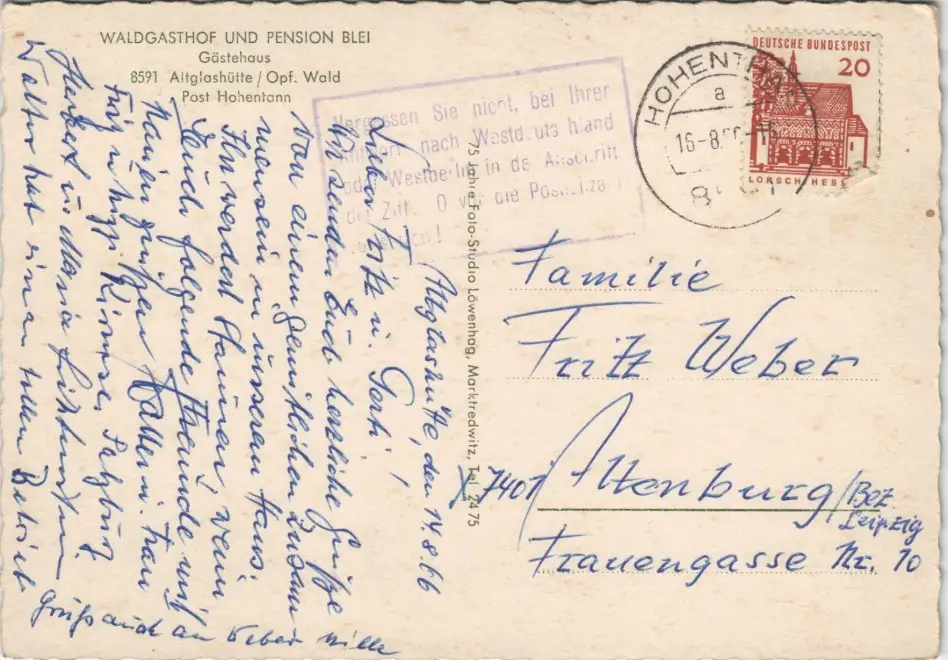 WALDGASTHOF UND PENSION BLEI
Gästehaus
8591 Altglashütte / Opf. Wald
Post Hohentann
Vergessen Sie nicht, bei Ihrer
nach Westdeutschland
oder Westberlin in der Anschrift
die Ziff. 0 vor die Postleitzahl
75 Jahre Foto-Studio Löwenhag, Marktredwitz, Tel. 2475
DEUTSCHE BUNDESPOST
20
LORSCH/HESS
HOHENTANN
a
16-8.66-16
Altglashütte, den 14.8.66
Lieber Fritz u. Gerti!
Wir senden Euch herzliche Grüße
von einem gemütlichen Zusam
mensein in unserem Haus.
Ihr werdet staunen, wenn
Euch folgende Freunde mit
Namen grüßen Walter u. Frau
Herbert u. Maria
Walter hat einen tollen Betrieb
Gruß auch an Weber Wille
Familie
Fritz Weber
x 7401 Altenburg / Bez.
Leipzig
Frauengasse Nr. 10